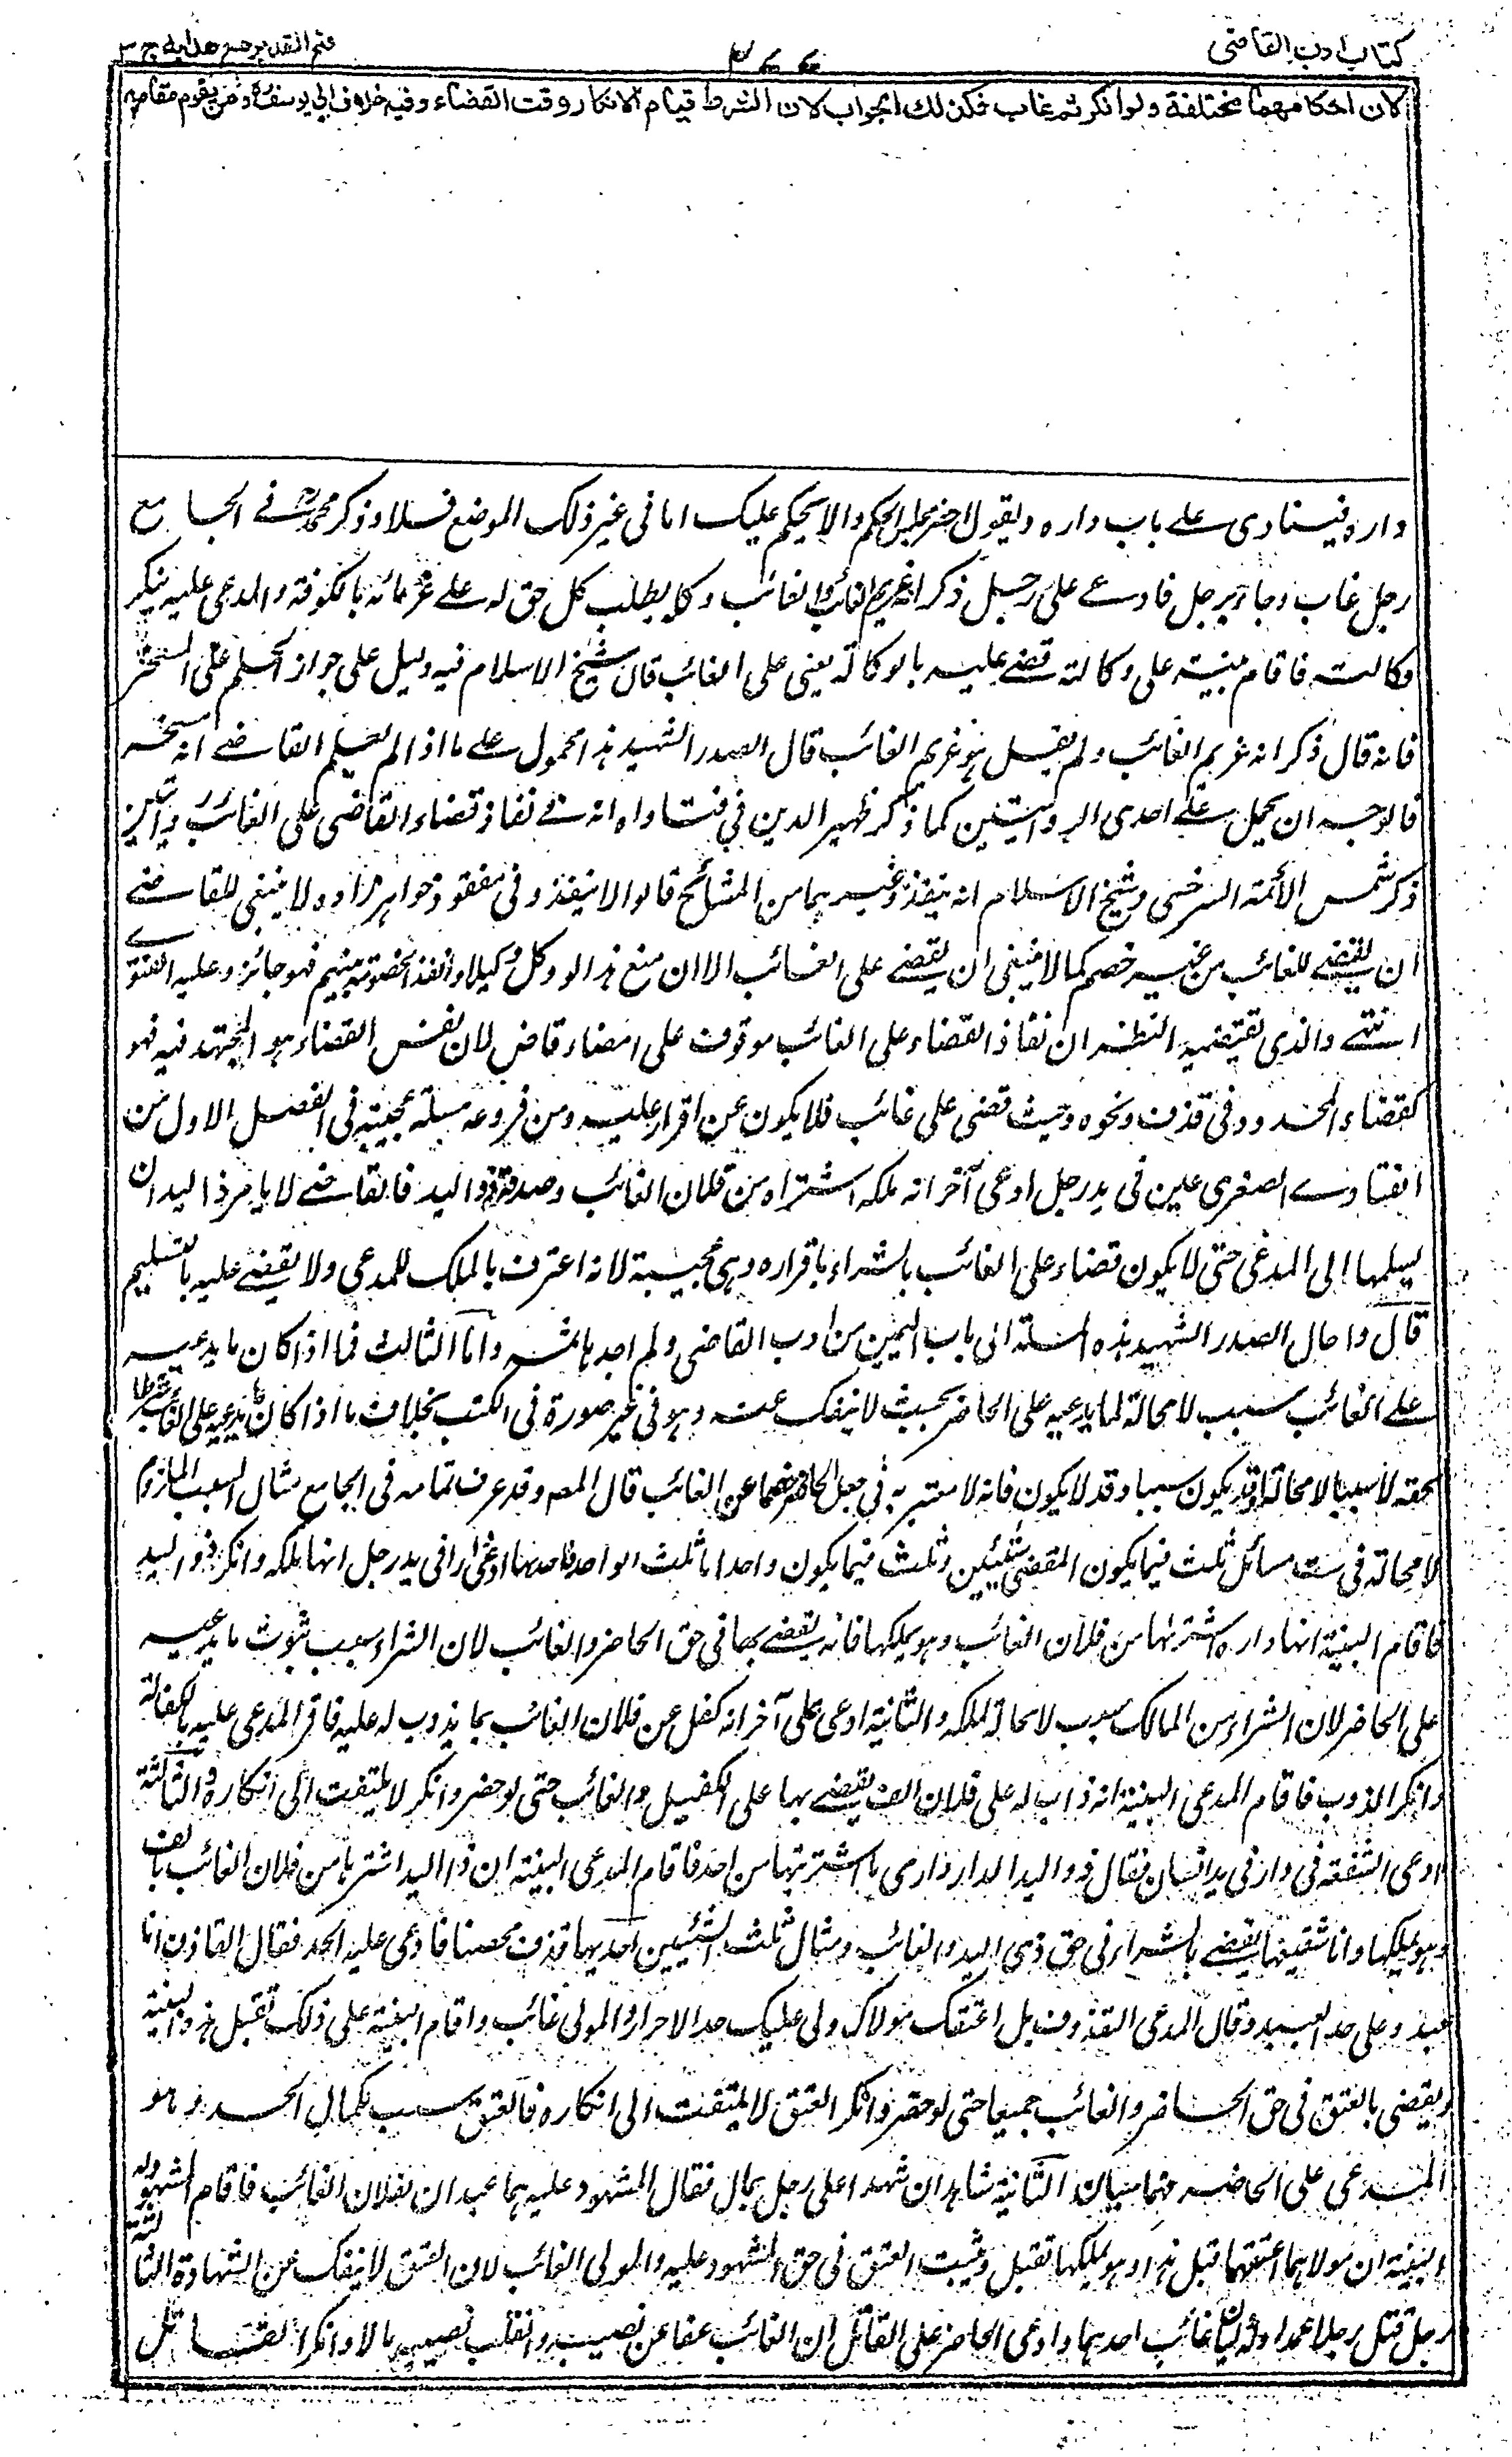 كتاب ادب القاضى
٣٧٧
فتح القدير مع هدايه ج ٣
لان احكامهما مختلفة ولو انكر ثم غاب فكذلك الجواب لان الشرط قيام الانكار وقت القضاء وفيه خلاف ابي يوسف رح ومن يقوم مقامه
داره فينادى على باب داره ويقول احضر مجلس الحكم والا يحكم عليك اما فى غير ذلك الموضع فلا وذكر محمد رح فى الجامع
رجل غاب وجاء رجل فادعى على رجل ذكر انه غريم الغائب وان الغائب وكله بطلب كل حق له على غرمائه بالكوفة والمدعى عليه ينكر
وكالته فاقام بينة على وكالته قضى عليه بالوكالة يعنى على الغائب قال شيخ الاسلام فيه دليل على جواز الحكم على المسخر
فانه قال ذكر انه غريم الغائب ولم يقل هو غريم الغائب قال الصدر الشهيد هذا محمول على ما اذا لم يعلم القاضى انه مسخر
فالوجه ان يحمل على احدى الروايتين كما ذكر ظهير الدين فى فتاواه انه فى نفاذ قضاء القاضى على الغائب روايتين
ذكر شمس الأئمة السرخسى وشيخ الاسلام انه ينفذ وغيرهما من المشائخ قالوا لا ينفذ وفى مفقود خواهرزاده ولا ينبغى للقاضى
ان يقضى للغائب من غير خصم كما لا ينبغى ان يقضى على الغائب الا ان مع هذا لو وكل وكيلا وانفذ الخصومة بينهم فهو جائز وعليه الفتوى
انتهى والذى يقتضيه النظر ان نفاذ القضاء على الغائب موقوف على امضاء قاض لان نفس القضاء هو المجتهد فيه فهو
كقضاء المحدود فى قذف ونحوه وحيث قضى على غائب فلا يكون عن اقرار عليه ومن فروعه مسئلة عجيبة فى الفصل الاول من
الفتاوى الصغرى عين فى يد رجل ادعى آخر انه ملكه اشتراه من فلان الغائب وصدقه ذو اليد فالقاضى لا يامر ذا اليد ان
يسلمها الى المدعى حتى لا يكون قضاء على الغائب بالشراء باقراره وهى عجيبة لانه اعترف بالملك للمدعى ولا يقضى عليه بالتسليم
قال واحال الصدر الشهيد هذه المسئلة الى باب اليمين من ادب القاضى ولم اجدها ثمه واما الثالث فما اذا كان ما يدعيه
على الغائب سبب لا محالة لما يدعيه على الحاضر بحيث لا ينفك عنه وهو فى غير صورة فى الكتب بخلاف ما اذا كان ما يدعيه على الغائب شرطا
لحقه لا سببا لا محالة او قد يكون سببا وقد لا يكون فانه لا معتبر به فى جعل الحاضر خصما عن الغائب قال المص وقد عرف تمامه فى الجامع مثال السبب الملزوم
لا محالة فى ست مسائل ثلث فيما يكون المقضى شيئين وثلث فيما يكون واحدا اما ثلث الواحد فاحدها ادعى دارا فى يد رجل انها ملكه وانكر ذو اليد
فاقام البينة انها داره اشتريها من فلان الغائب وهو يملكها فانه يقضى بها فى حق الحاضر والغائب لان الشراء سبب ثبوت ما يدعيه
على الحاضر لان الشراء من المالك سبب لا محالة لملكه والثانية ادعى على آخر انه كفل عن فلان الغائب بما يذوب له عليه فاقر المدعى عليه بالكفالة
وانكر الذوب فاقام المدعى البينة انه ذاب له على فلان الف يقضى بها على الكفيل والغائب حتى لو حضر وانكر لا يلتفت الى انكاره والثالثة
ادعى الشفعة فى دار فى يد انسان فقال ذو اليد الدار دارى ما اشتريتها من احد فاقام المدعى البينة ان ذا اليد اشتراها من فلان الغائب بالف
وهو يملكها وانا شفيعها يقضى بالشراء فى حق ذى اليد والغائب ومثال ثلث الشيئين احديها قذف محصنا فادعى عليه الحد فقال القاذف انا
عبد وعلى حد العبيد وقال المدعى المقذوف بل اعتقك مولاك ولى عليك حد الاحرار والمولى غائب واقام البينة على ذلك تقبل هذه البينة
ويقضى بالعتق فى حق الحاضر والغائب جميعا حتى لو حضر وانكر العتق لا يلتفت الى انكاره فالعتق سبب لكمال الحد وهو
المدعى على الحاضر فهما شيئان الثانية شاهدان شهدا على رجل بمال فقال المشهود عليه هما عبدان لفلان الغائب فاقام المشهود له
البينة ان مولاهما اعتقهما قبل هذا وهو يملكهما تقبل ويثبت العتق فى حق المشهود عليه والمولى الغائب لان العتق لا ينفك عن الشهادة الثالثة
رجل قتل رجلا عمدا وله وليان غاب احدهما وادعى الحاضر على القاتل ان الغائب عفا عن نصيبه وانقلب نصيبه مالا وانكر القاتل